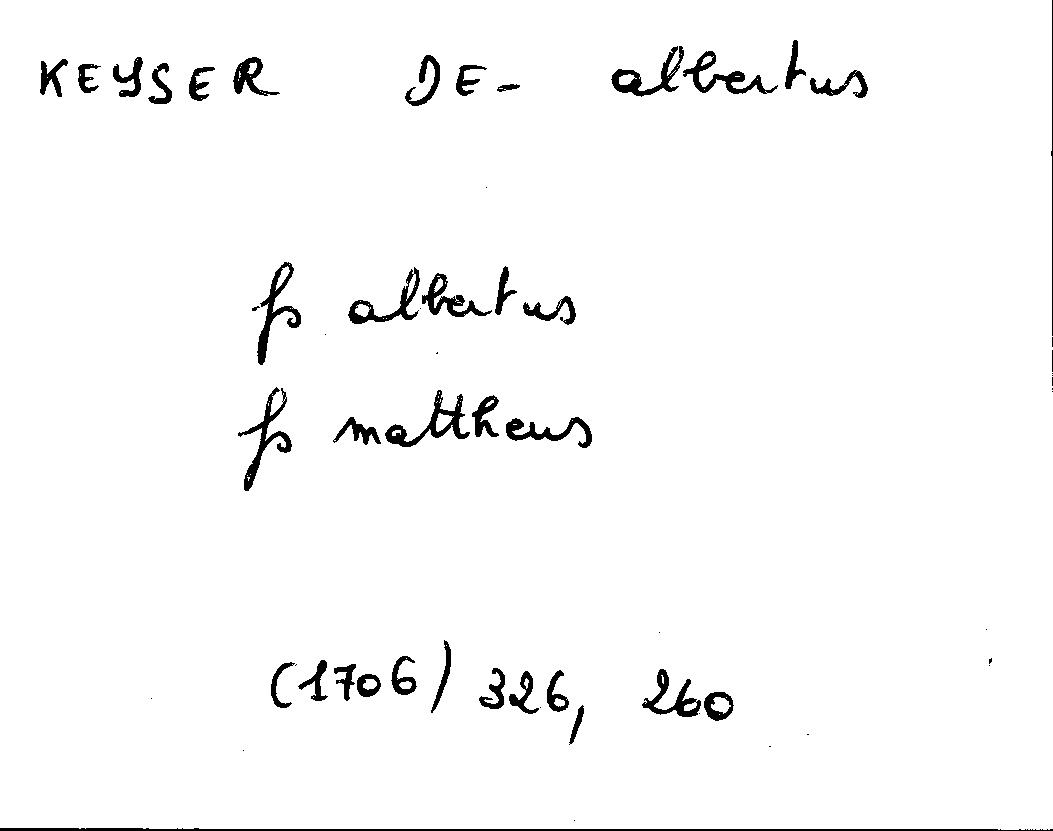 KEYSER DE- albertus
fs albertus
fs mattheus
(1706) 326, 260